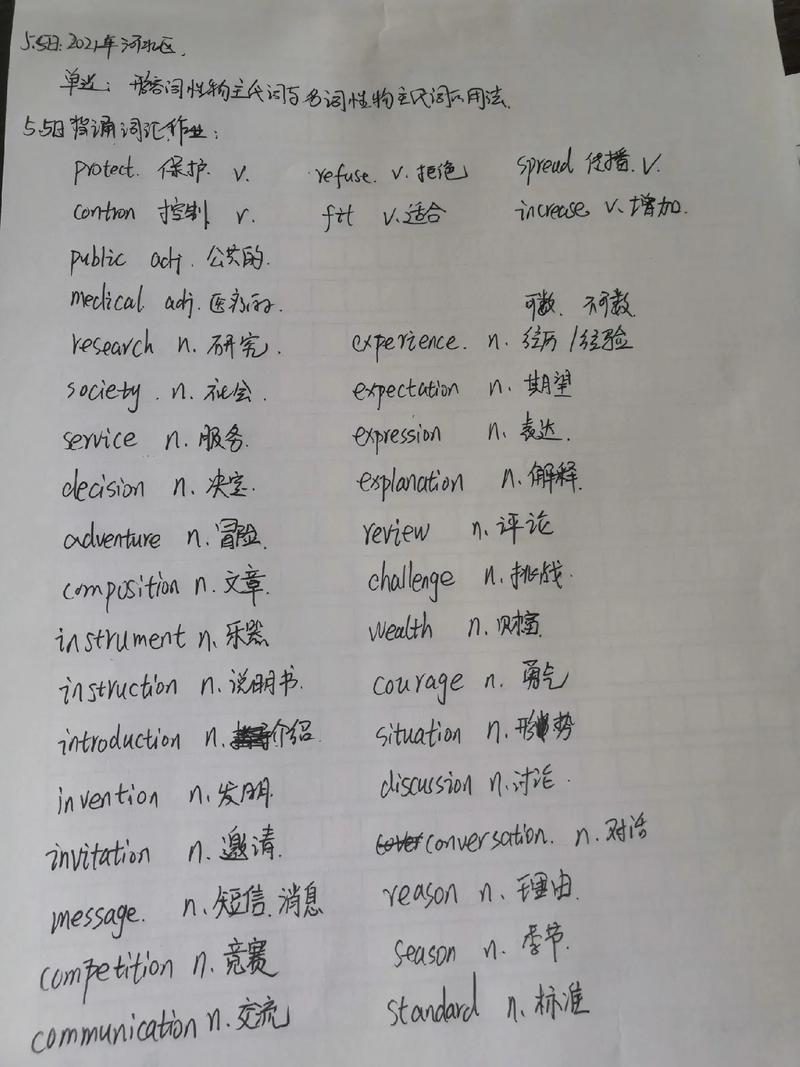 5.5日:2021年河北区.
单选: 形容词性物主代词与名词性物主代词的用法.
5.5日背诵词汇作业:
protect. 保护. v. refuse. v. 拒绝 spread 传播. v.
contron 控制 v. fit v. 适合 increase v. 增加.
public adj. 公共的.
medical adj. 医疗的. 可数. 不可数.
research n. 研究. experience. n. 经历 / 经验
society. n. 社会. expectation n. 期望
service n. 服务. expression n. 表达.
decision n. 决定. explanation n. 解释.
adventure n. 冒险. review n. 评论
composition n. 文章. challenge n. 挑战.
instrument n. 乐器 wealth n. 财富.
instruction n. 说明书. courage n. 勇气
introduction n. 介绍. situation n. 形势
invention n. 发明. discussion n. 讨论.
invitation n. 邀请. conversation. n. 对话
message. n. 短信. 消息 reason n. 理由.
competition n. 竞赛 season n. 季节.
communication n. 交流 standard n. 标准